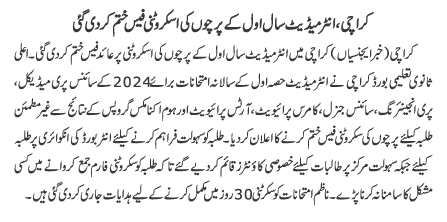 کراچی، انٹرمیڈیٹ سال اول کے پرچوں کی اسکروٹنی فیس ختم کر دی گئی
کراچی (خبر ایجنسیاں) کراچی میں انٹرمیڈیٹ سال اول کے پرچوں کی اسکروٹنی پر عائد فیس ختم کر دی گئی۔ اعلیٰ
ثانوی تعلیمی بورڈ کراچی نے انٹرمیڈیٹ حصہ اول کے سالانہ امتحانات برائے 2024 کے سائنس پری میڈیکل،
پری انجینئرنگ، سائنس جنرل، کامرس پرائیویٹ، آرٹس پرائیویٹ اور ہوم اکنامکس گروپس کے نتائج سے غیر مطمئن
طلبہ کیلئے پرچوں کی اسکروٹنی فیس ختم کرنے کا اعلان کر دیا۔ طلبہ کو سہولت فراہم کرنے کیلئے انٹر بورڈ کی انکوائری پر طلبہ
کیلئے جبکہ سہولت مرکز پر طالبات کیلئے خصوصی کاؤنٹرز قائم کر دیے گئے تاکہ طلبہ کو سکروٹنی فارم جمع کروانے میں کسی
مشکل کا سامنا نہ کرنا پڑے۔ ناظم امتحانات کو سکروٹنی 30 روز میں مکمل کرنے کے لیے ہدایات جاری کر دی گئی ہیں۔